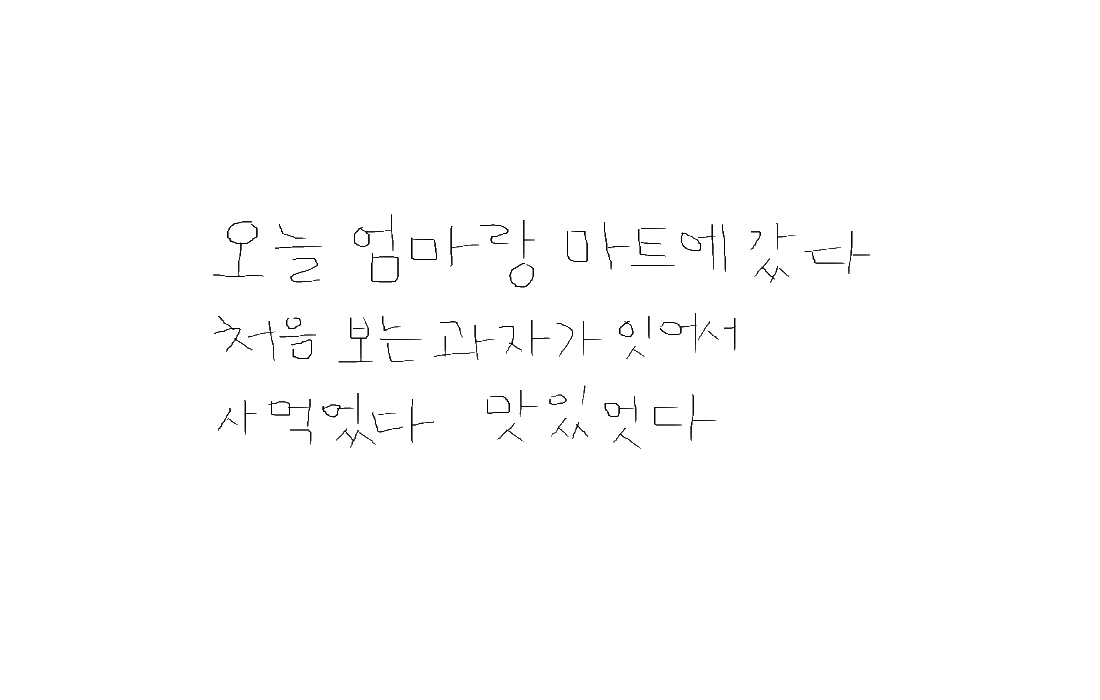 오늘 엄마랑 마트에 갔다
처음 보는 과자가 잇어서
사먹었다 맛있엇다